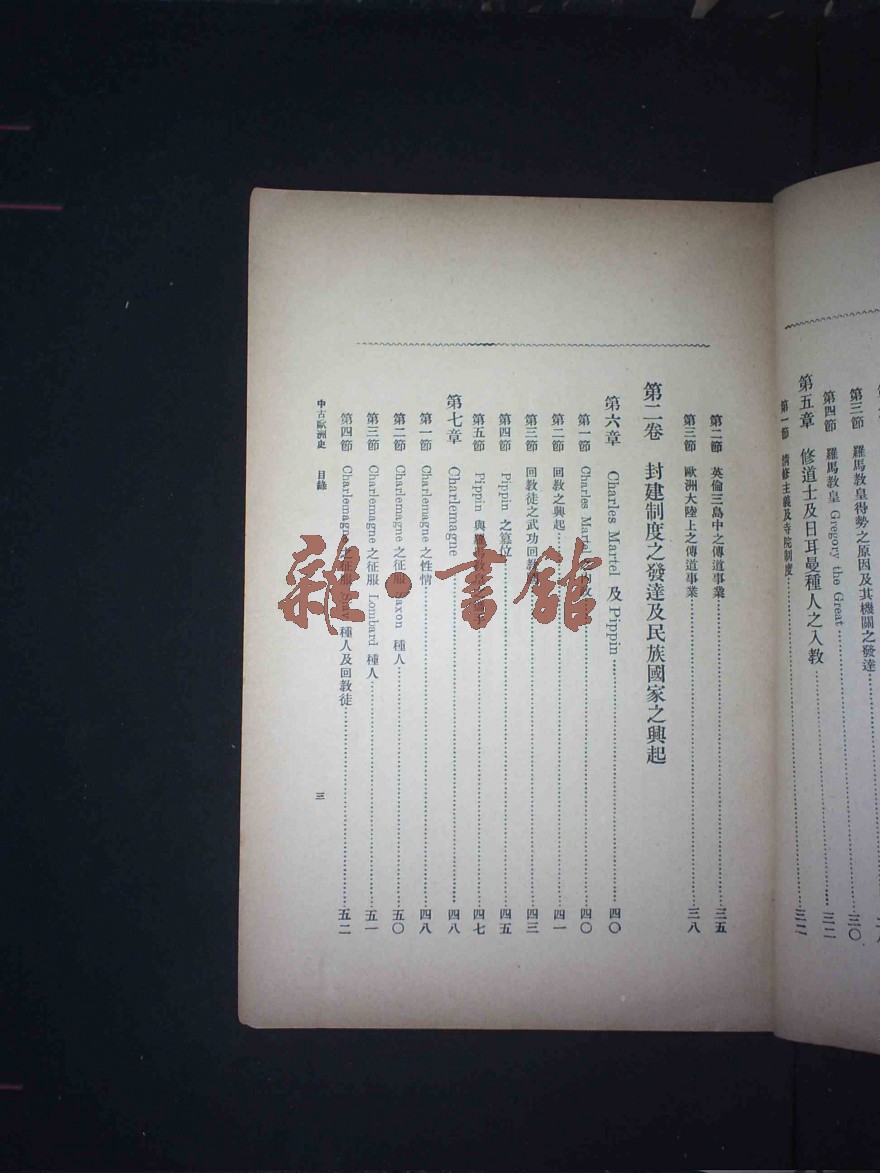 第三節 羅馬教皇得勢之原因及其機關之發達 三〇
第四節 羅馬教皇 Gregory the Great 三二
第五章 修道士及日耳曼種人之入教 三二
第一節 清修主義及寺院制度
第二節 英倫三島中之傳道事業 三五
第三節 歐洲大陸上之傳道事業 三八
第二卷 封建制度之發達及民族國家之興起
第六章 Charles Martel 及 Pippin 四〇
第一節 Charles Martel 四〇
第二節 回教之興起 四一
第三節 回教徒之武功回教 四三
第四節 Pippin 之篡位 四五
第五節 Pippin 與 四七
第七章 Charlemagne 四八
第一節 Charlemagne 之性情 四八
第二節 Charlemagne 之征服 Saxon 種人 五〇
第三節 Charlemagne 之征服 Lombard 種人 五一
第四節 Charlemagne 之征服 Slav 種人及回教徒 五二
中古歐洲史 目錄 三
雜·書館